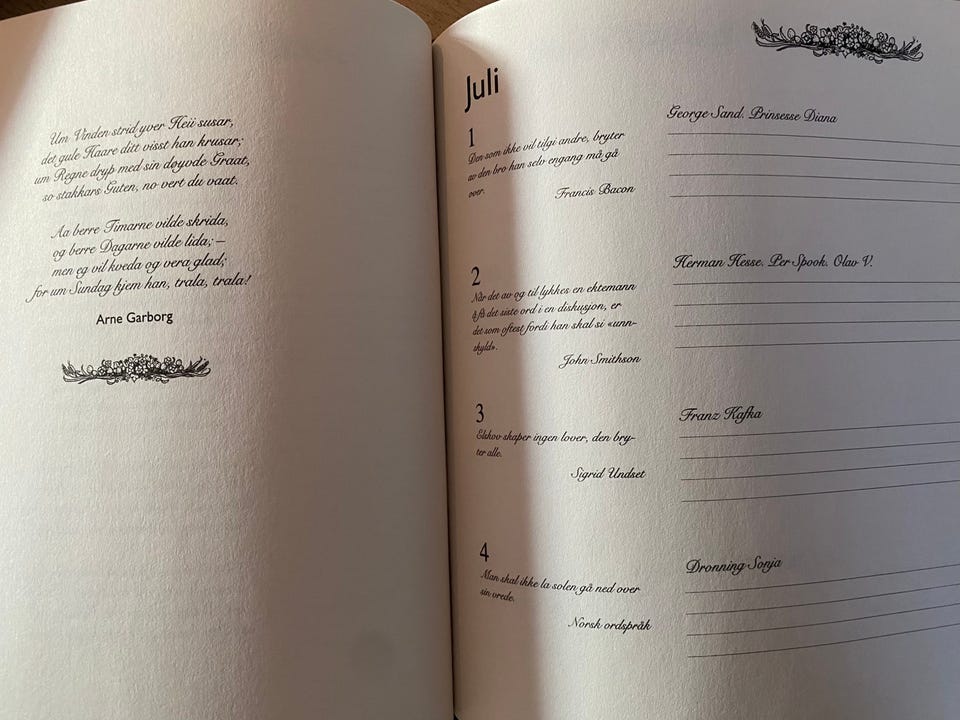 Um Vinden strid yver Heii susar,
det gule Haare ditt visst han krusar;
um Regne dryp med sin døyvde Graat,
so stakkars Guten, no vert du vaat.
Aa berre Timarne vilde skrida,
og berre Dagarne vilde lida; —
men eg vil kveda og vera glad;
for um Sundag kjem han, trala, trala!
Arne Garborg
Juli
1
Den som ikke vil tilgi andre, bryter
av den bro han selv engang må gå
over.
Francis Bacon
George Sand. Prinsesse Diana
2
Når det av og til lykkes en ektemann
å få det siste ord i en diskusjon, er
det som oftest fordi han skal si «unn-
skyld».
John Smithson
Herman Hesse. Per Spook. Olav V.
3
Elskov skaper ingen lover, den bry-
ter alle.
Sigrid Undset
Franz Kafka
4
Man skal ikke la solen gå ned over
sin vrede.
Norsk ordspråk
Dronning Sonja